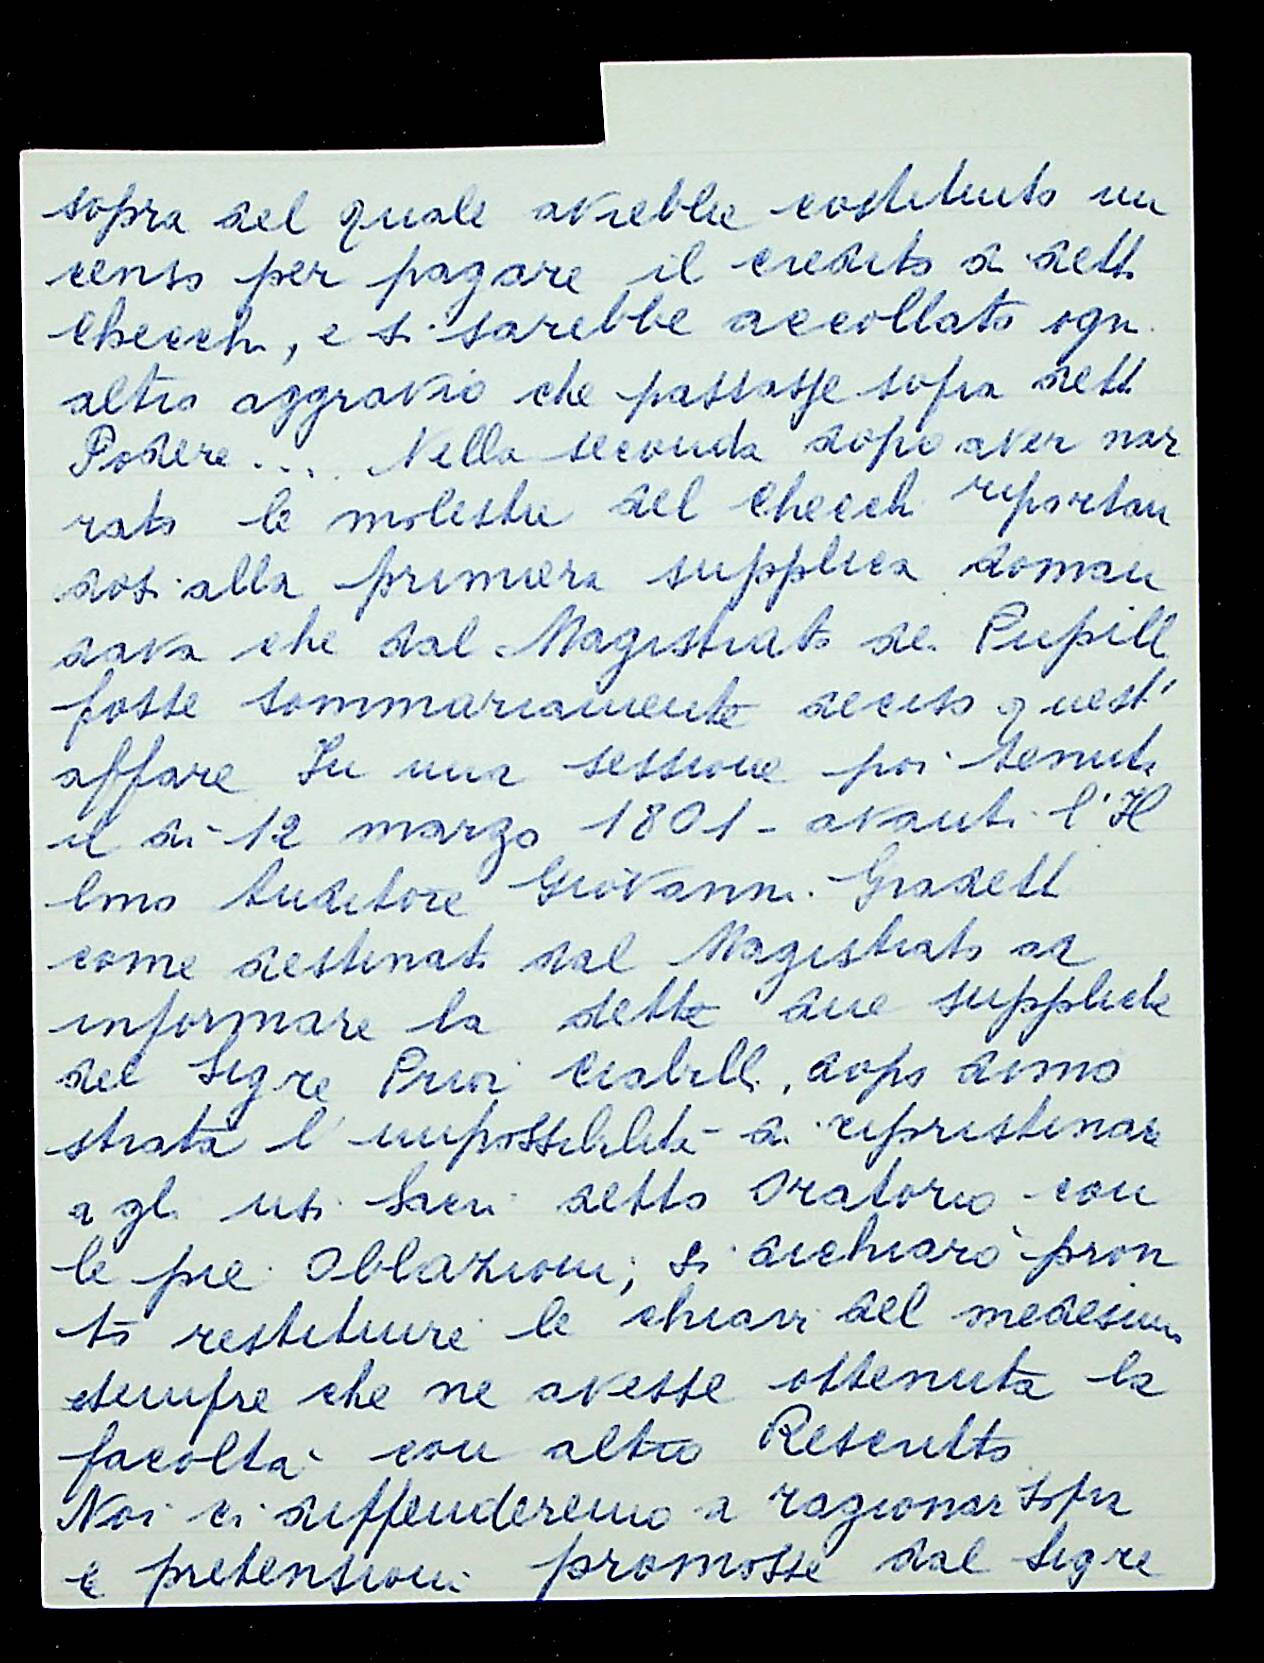 sopra del quale avrebbe costituito un
censo per pagare il credito di detti
Checchi, e si sarebbe accollato ogni
altro aggravio che passasse sopra detti
Podere... Nella seconda dopo aver nar
rato le molestie del Checchi riportan
dosi alla primiera supplica doman
dava che dal Magistrato dei Pupilli
fosse sommariamente deciso quest'
affare In una sessione poi tenuta
il dì 12 marzo 1801 - avanti l'Il
lmo Auditore Giovanni
come destinato dal Magistrato ad
informare la dette due suppliche
del Sigre Priori dopo dimo
strata l'impossibilità di ripristinare
agli usi Sacri detto Oratorio con
le pie Oblazioni; si dichiarò pron
to restituire le chiavi del medesimo
sempre che ne avesse ottenuta la
facoltà con altro Rescritto
Noi ci diffenderemo a ragionar sopra
e pretensioni promosse dal Sigre